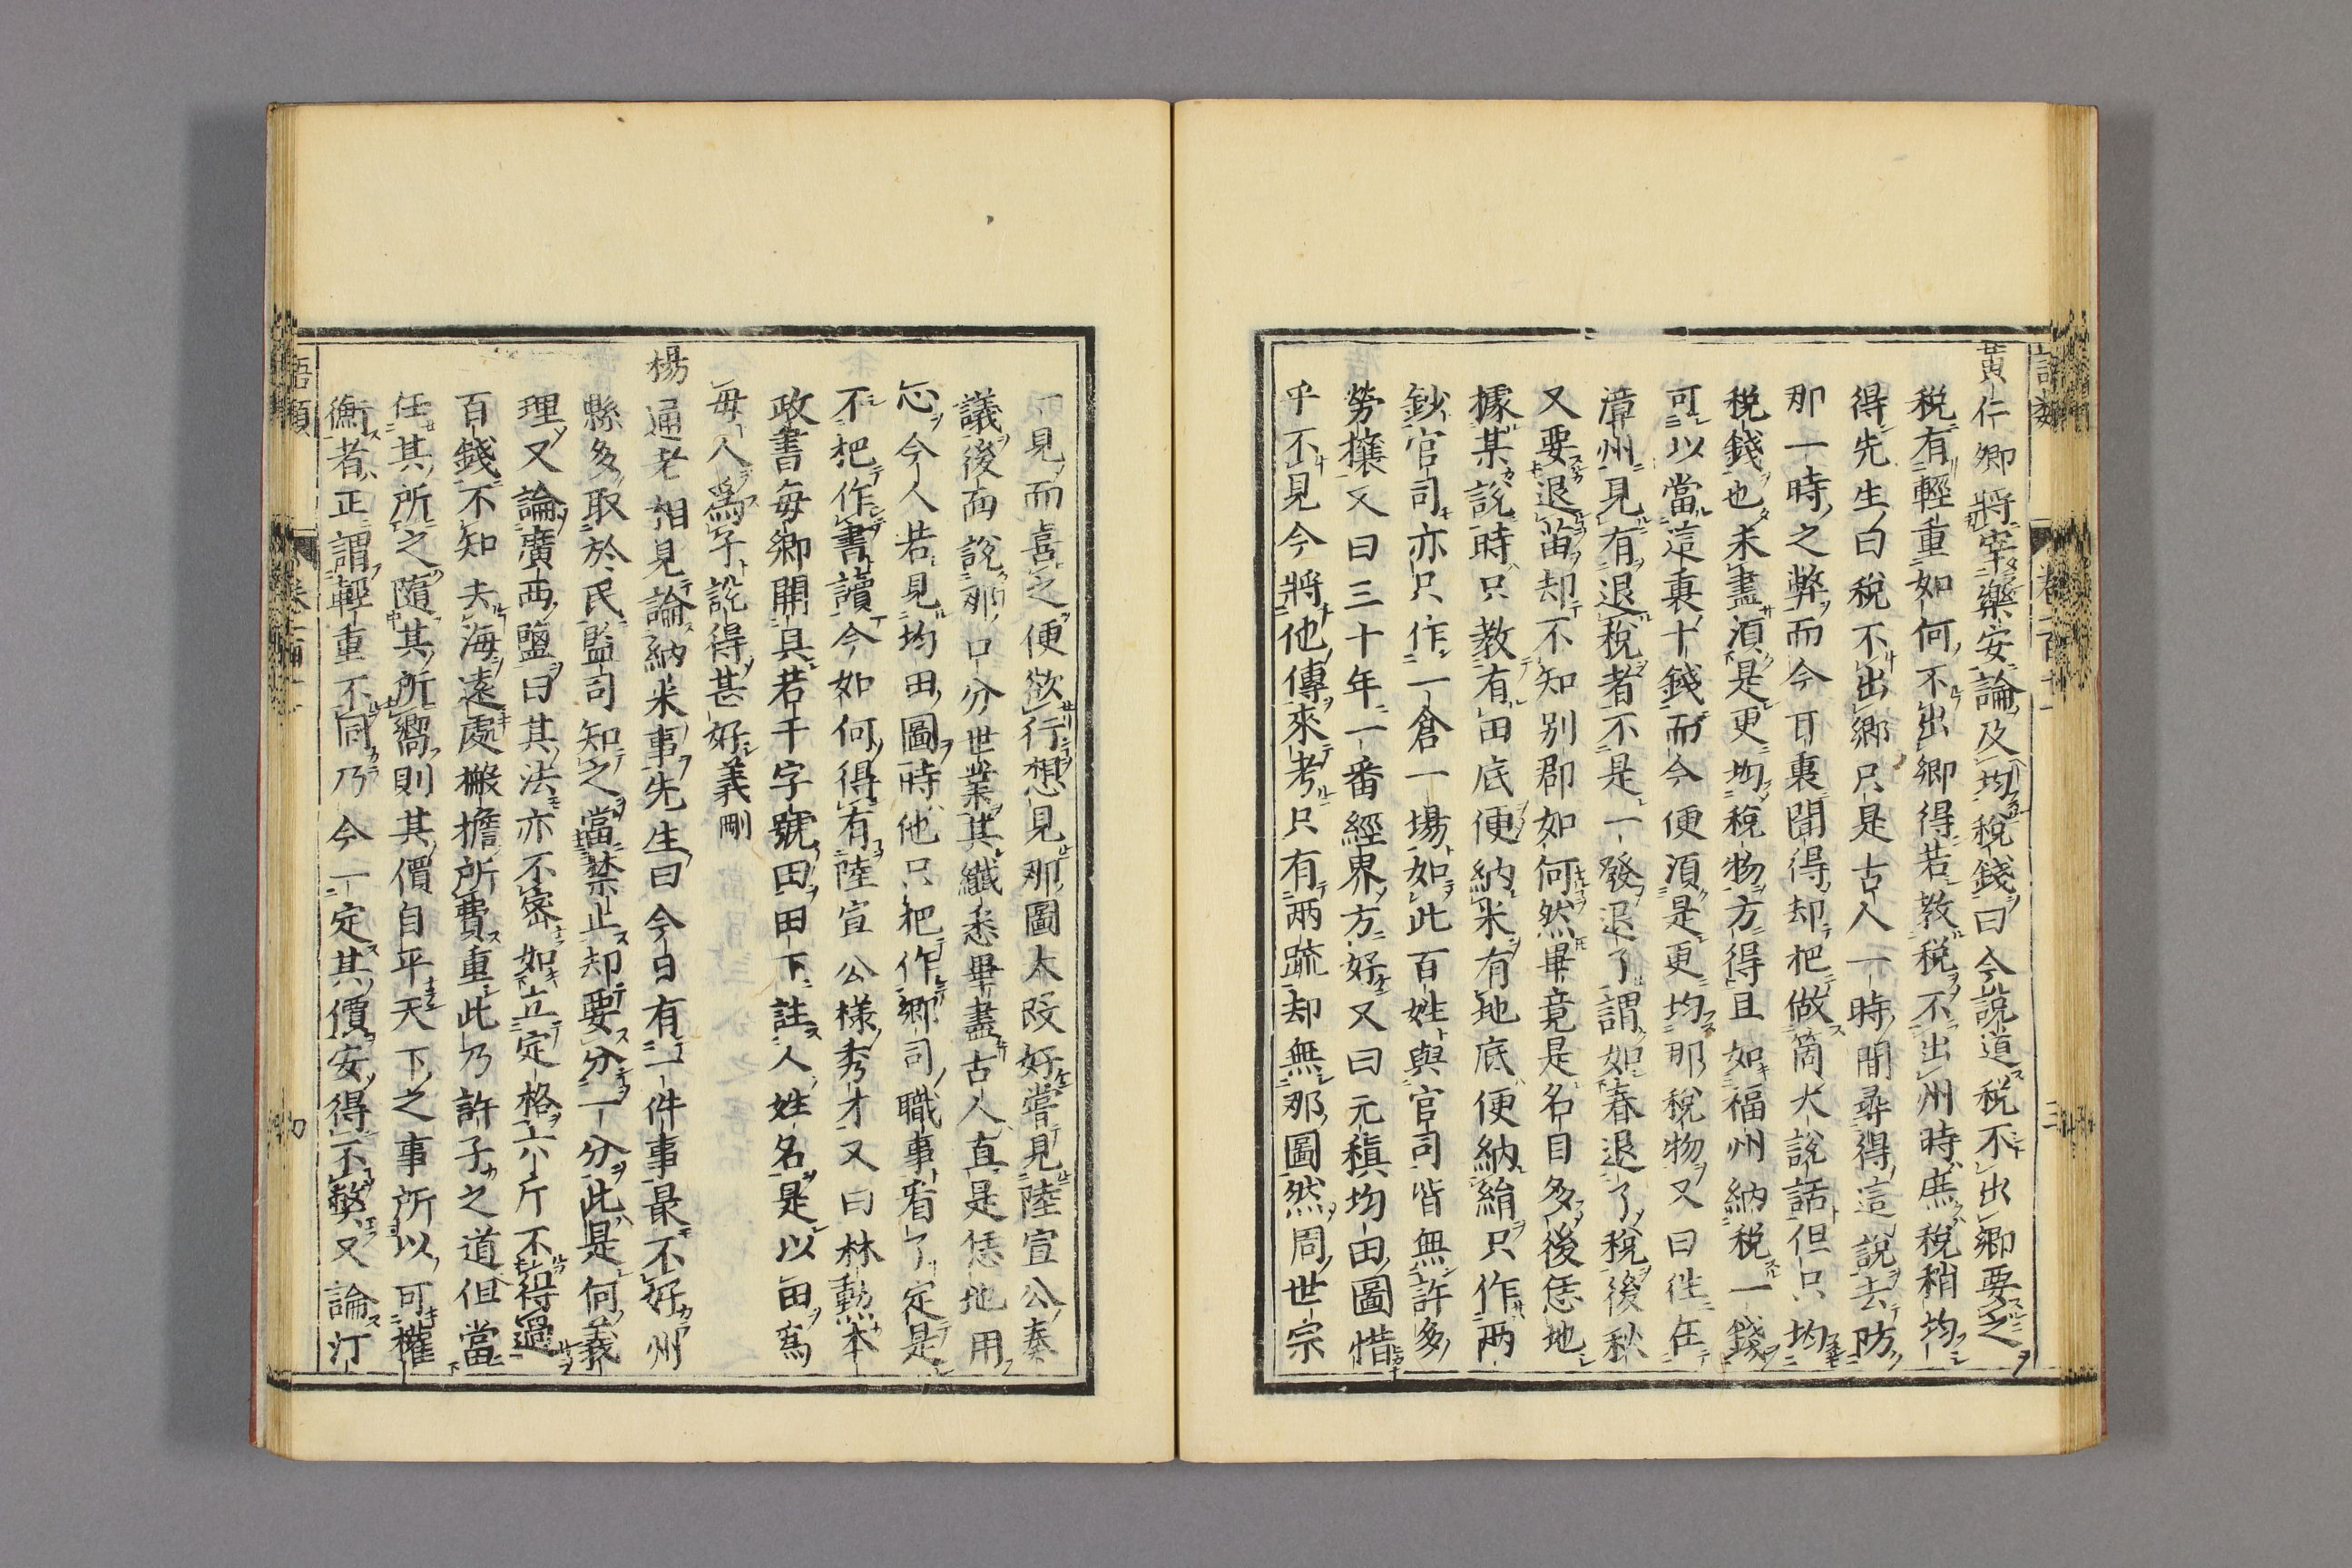 黃仁卿將宰樂安論及均稅錢曰今說道稅不出鄉要之
稅有輕重如何不出鄉得若教稅不出州時庶稅稍均
得先生曰稅不出鄉只是古人一時間尋得這說去防
那一時之弊而今耳裏聞得却把做箇大說話但只均
稅錢也未盡湏是更均稅物方得且如福州納稅一錢
可以當這裏十錢而今便湏是更均那稅物又曰往在
漳州見有退稅者不是一發退了謂如春退了稅後秋
又要退苗却不知別郡如何然畢竟是名目多後恁地
據某說時只教有田底便納米有地底便納絹只作兩
鈔官司亦只作一倉一場如此百姓與官司皆無許多
勞攘又曰三十年一番經界方好又曰元稹均田圖惜
乎不見今將他傳來考只有兩疏却無那圖然周世宗
一見而喜之便欲行想見那圖大段好嘗見陸宣公奏
議後面說那口分世業其纖悉畢盡古人直是恁地用
心今人若見均田圖時他只把作鄉司職事看了定是
不把作書讀今如何得有陸宣公樣秀才又曰林勳本
政書每鄉開具若干字號田田下註人姓名是以田爲
母人爲子說得甚好義剛
楊通老相見論納米事先生曰今日有一件事最不好州
縣多取於民監司知之當禁止却要分一分此是何義
理又論廣西鹽曰其法亦不密如立定格六斤不得過
百錢不知去海遠處搬擔所費重此乃許子之道但當
任其所之隨其所嚮則其價自平天下之事所以可權
衡者正謂輕重不同乃今一定其價安得不弊又論汀